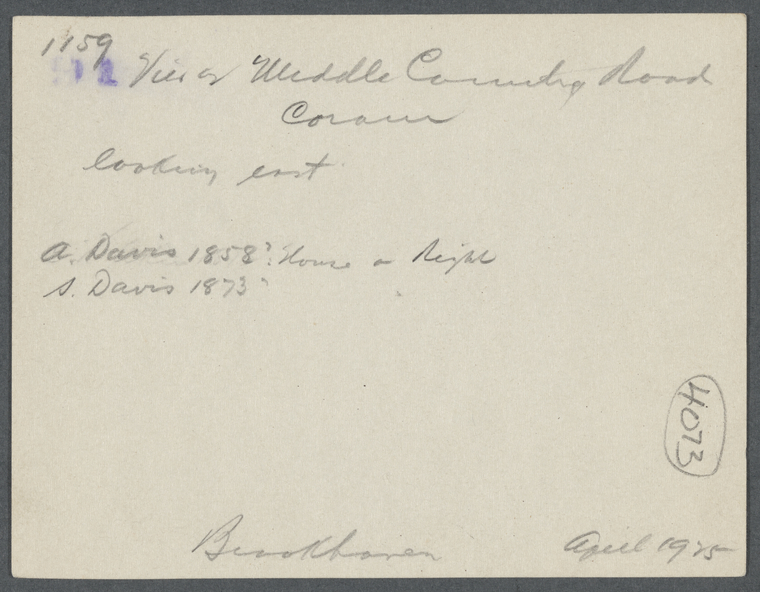 1159
91 View of Middle Country Road
Coram
looking east
A. Davis 1858? House on Right
S. Davis 1873?
4073
Brookhaven
April 1925